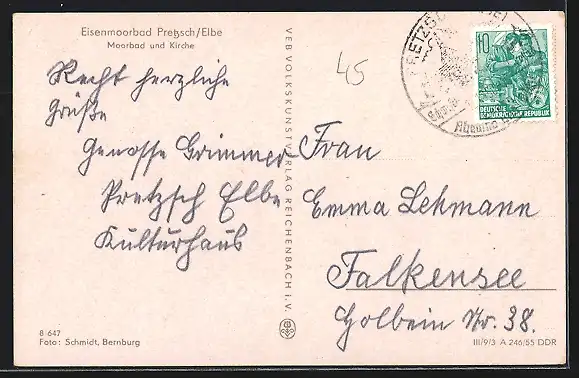 Eisenmoorbad Pretzsch/Elbe
Moorbad und Kirche
Recht herzliche
Grüße
Genosse Grimmer
Pretzsch Elbe
Kulturhaus
B 647
Foto: Schmidt, Bernburg
VEB VOLKSKUNSTVERLAG REICHENBACH i. V.
45
10
DEUTSCHE
DEMOKRATISCHE REPUBLIK
Frau
Emma Lehmann
Falkensee
Holbein Nr. 38.
III/9/3 A 246/55 DDR